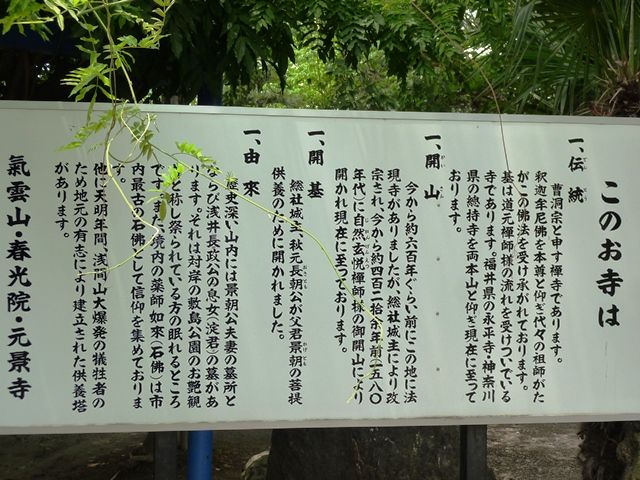 このお寺は
一、伝統
曹洞宗と申す禅寺であります。
釈迦牟尼佛を本尊と仰ぎ代々の祖師がた
がこの佛法を受け承がれております。開
基は道元禅師様の流れを受けついでいる
寺であります。福井県の永平寺・神奈川
県の總持寺を両本山と仰ぎ現在に至って
おります。
一、開山
今から約六百年ぐらい前にこの地に法
現寺がありましたが、総社城主により改
宗され、今から約四百二拾余年前(一五八〇
年代)に自然玄悦禅師様の御開山により
開かれ現在に至っております。
一、開基
総社城主、秋元長朝公が父君景朝の菩提
供養のために開かれました。
一、由來
歴史深い山内には景朝公夫妻の墓所と
ならび浅井長政公の息女(淀君)の墓があ
ります。それは対岸の敷島公園のお艶観
と称し祭られている方の眠れるところ
です。境内の薬師如來(石佛)は市
内最古の石佛として信仰を集めておりま
す。
他に天明年間、浅間山大爆発の犠牲者の
ため地元の有志により建立された供養塔
があります。
氣雲山・春光院・元景寺